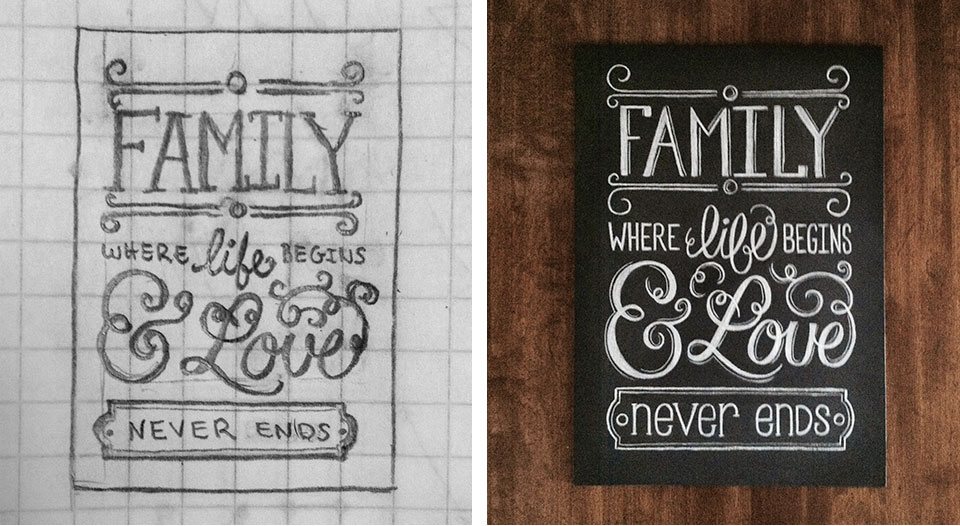 FAMILY
WHERE life BEGINS
& Love
NEVER ENDS
FAMILY
WHERE life BEGINS
& Love
never ends